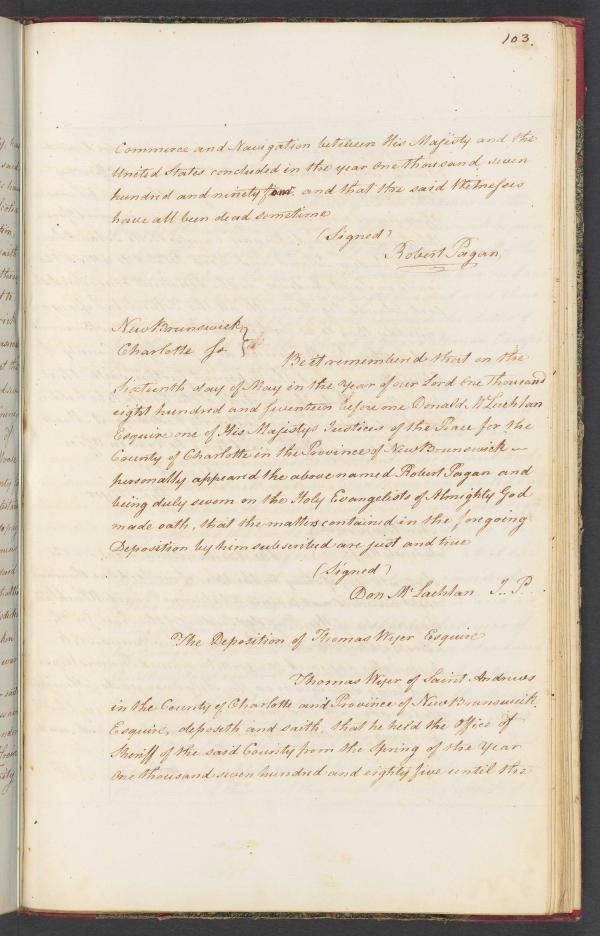 103.
Commerce and Navigation between His Majesty and the
United States concluded in the year One thousand seven
hundred and ninety four and that the said Witnesses
have all been dead sometime
(Signed)
Robert Pagan
New Brunswick
Charlotte Ss. } Be it remembered that on the
Sixteenth day of May in the Year of our Lord One Thousand
eight hundred and seventeen before me Donald McLachlan
Esquire one of His Majestys Justices of the Peace for the
County of Charlotte in the Province of New Brunswick
personally appeared the above named Robert Pagan and
being duly sworn on the Holy Evangelists of Almighty God
made oath, that the matters contained in the foregoing
Deposition by him subscribed are just and true
(Signed)
Don McLachlan J. P.
The Deposition of Thomas Wyer Esquire
Thomas Wyer of Saint Andrews
in the County of Charlotte and Province of New Brunswick
Esquire, deposeth and saith, that he held the Office of
Sheriff of the said County from the Spring of the Year
One thousand seven hundred and eighty five until the